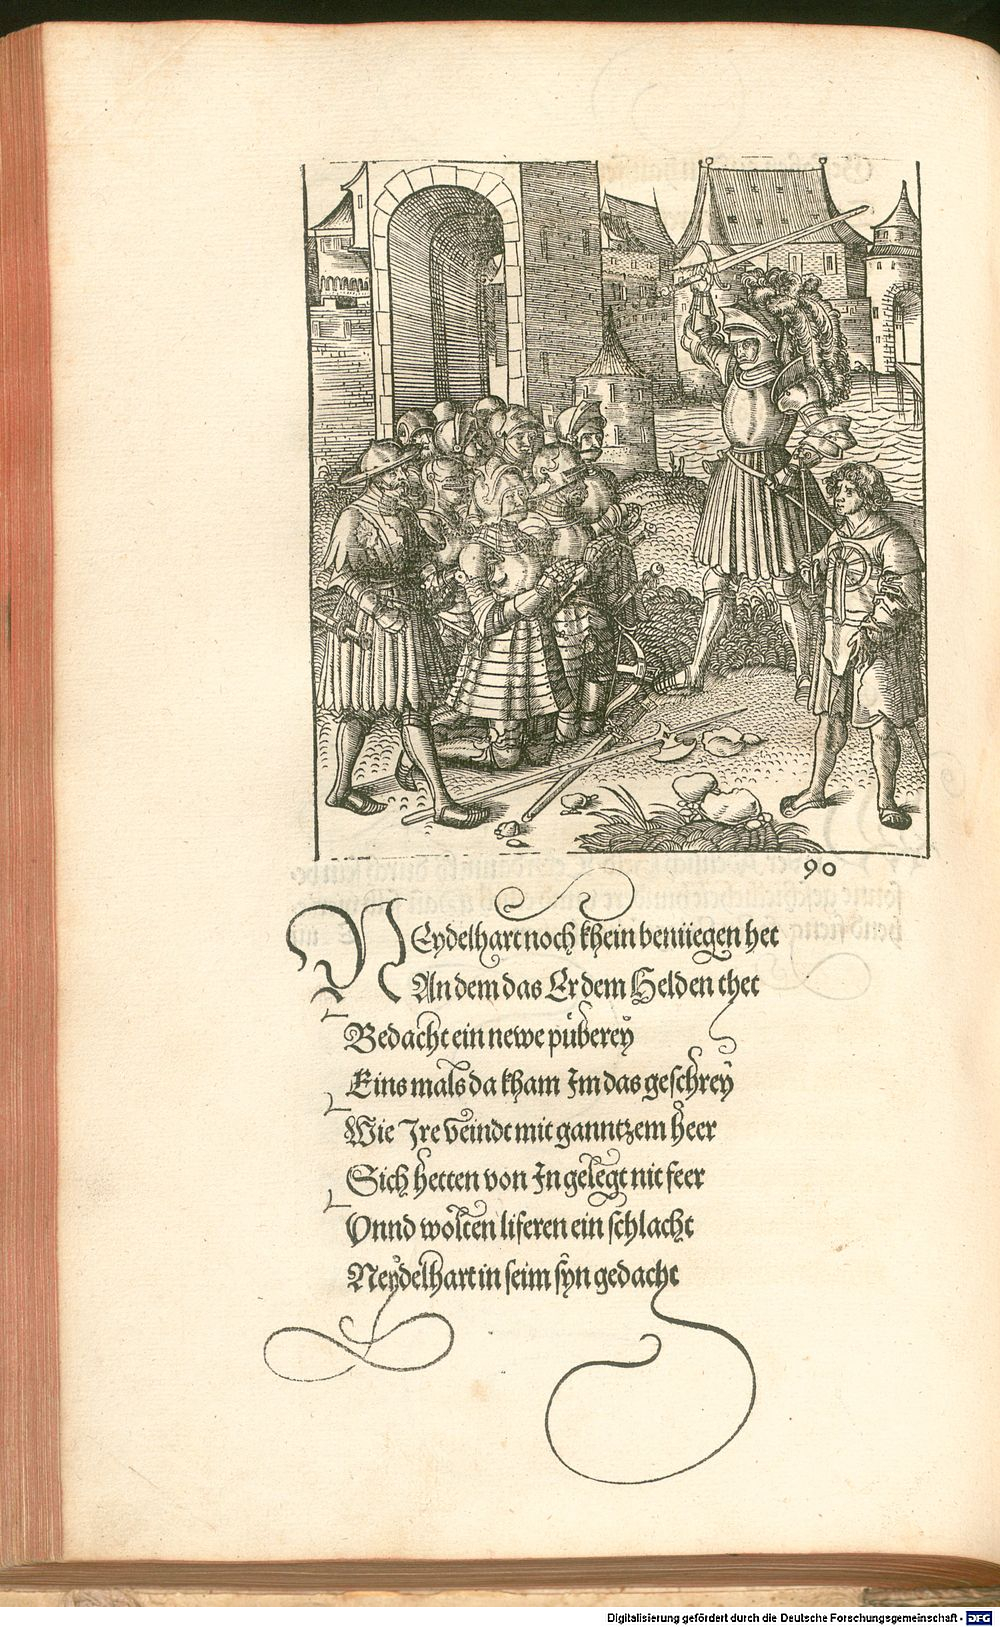 90
NEydelhart noch khein benüegen het
An dem das Er dem Helden thet
Bedacht ein newe püberey
Eins mals da kham Im das geschrey
Wie Ire veindt mit ganntzem heer
Sich hetten von In gelegt nit feer
Vnnd wolten liferen ein schlacht
Neydelhart in seim syn gedacht
Digitalisierung gefördert durch die Deutsche Forschungsgemeinschaft - DFG